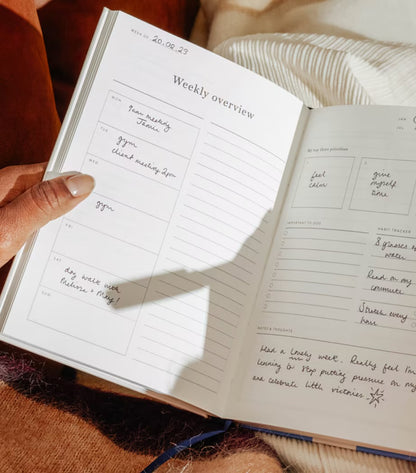 WEEK OF: 20.02.23
Weekly overview
MON
9am meeting
Jamie
TUE
gym
client meeting 2pm
WED
gym
FRI
SAT
dog walk with
Melissa + Mary!
SUN
My top three priorities
feel
calm
2
give
myself
time
IMPORTANT TO-DOS
HABIT TRACKER
8 glasses of
water
Read on my
commute
Stretch every
hour
NOTES & THOUGHTS
Had a lovely week. Really feel I'm
learning to stop putting pressure on my
and celebrate little victories.